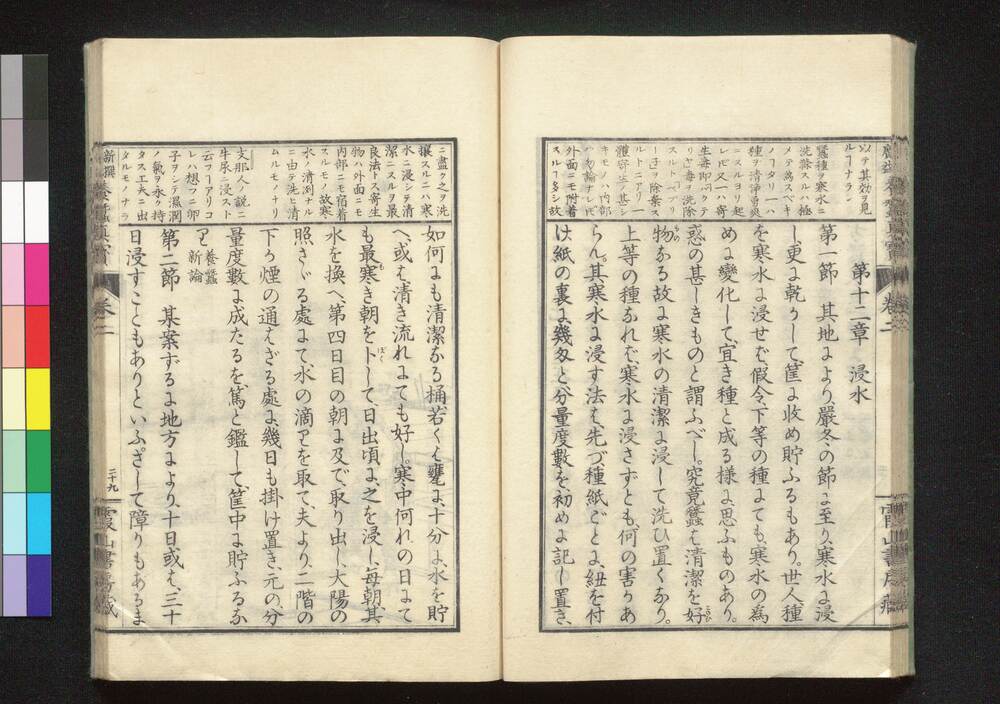 第十二章　浸水
第一節　其地により、嚴冬の節に至り、寒水に浸
し更に乾かして、筐に收め貯ふるもあり。世人種
を寒水に浸せば、假令、下等の種にても、寒水の爲
めに變化して、宜き種と成る樣に思ふものあり。
惑の甚しきものと謂ふべし。究竟蠶は清潔を好
物なる故に寒水の清潔に浸して洗ひ置くなり。
上等の種なれば、寒水に浸さずとも、何の害かあ
らん。其寒水に浸す法は、先づ種紙ごとに、紐を付
け紙の裏に幾匁と分量度數を初めに記し置き、
以テ其効ヲ見
ルーナラン
蠶種ヲ寒水ニ
洗滌スルハ極
メテ爲スベキ
種ヲ清淨勇爽
ニスルヨリ起
レ𪜈又一ハ寄
外面ニモ附着
スルーー多シ故
ニ盡ク之ヲ洗
攘スルニハ寒
水ニ浸シテ清
潔ニスルヲ最
良法トス寄生
物ハ外面ニモ
内部ニモ宿着
スルモノ故寒
水ノ清冽ナル
ニ由テ洗ヒ清
ムルモノナリ
支那人ノ説ニ
牛尿ニ浸スト
云フーアリコ
レ想フニ卵
子ヲシテ濕潤
ノ氣ヲ永ク持
タス工夫ニ出
タルモノナラ
如何にも清潔なる桶若くは甕に、十分に水を貯
へ、或は清き流れにても好し。寒中何れの日にて
も最寒き朝を卜して、日出頃に、之を浸し、毎朝其
水を換へ、第四日目の朝に及で、取り出し、大陽の
照さゞる處にて水の滴りを取て、夫より、二階の
下か煙の通はざる處に、幾日も掛け置き、元の分
量度數に成たるを篤と鑑して、筐中に貯ふるな
り　養蠶新論
第二節　某案ずるに地方により、十日或は、三十
日浸すこともありといふ、さして障りもあるま
卷二
二十九